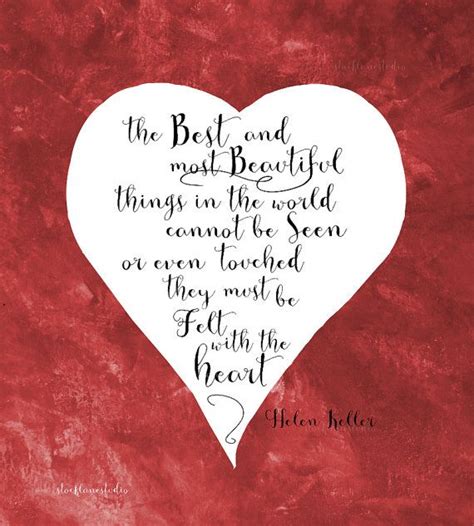 the Best and
most Beautiful
things in the world
cannot be Seen
or even touched
they must be
Felt
with the
heart
Helen Keller
stocklanestudio